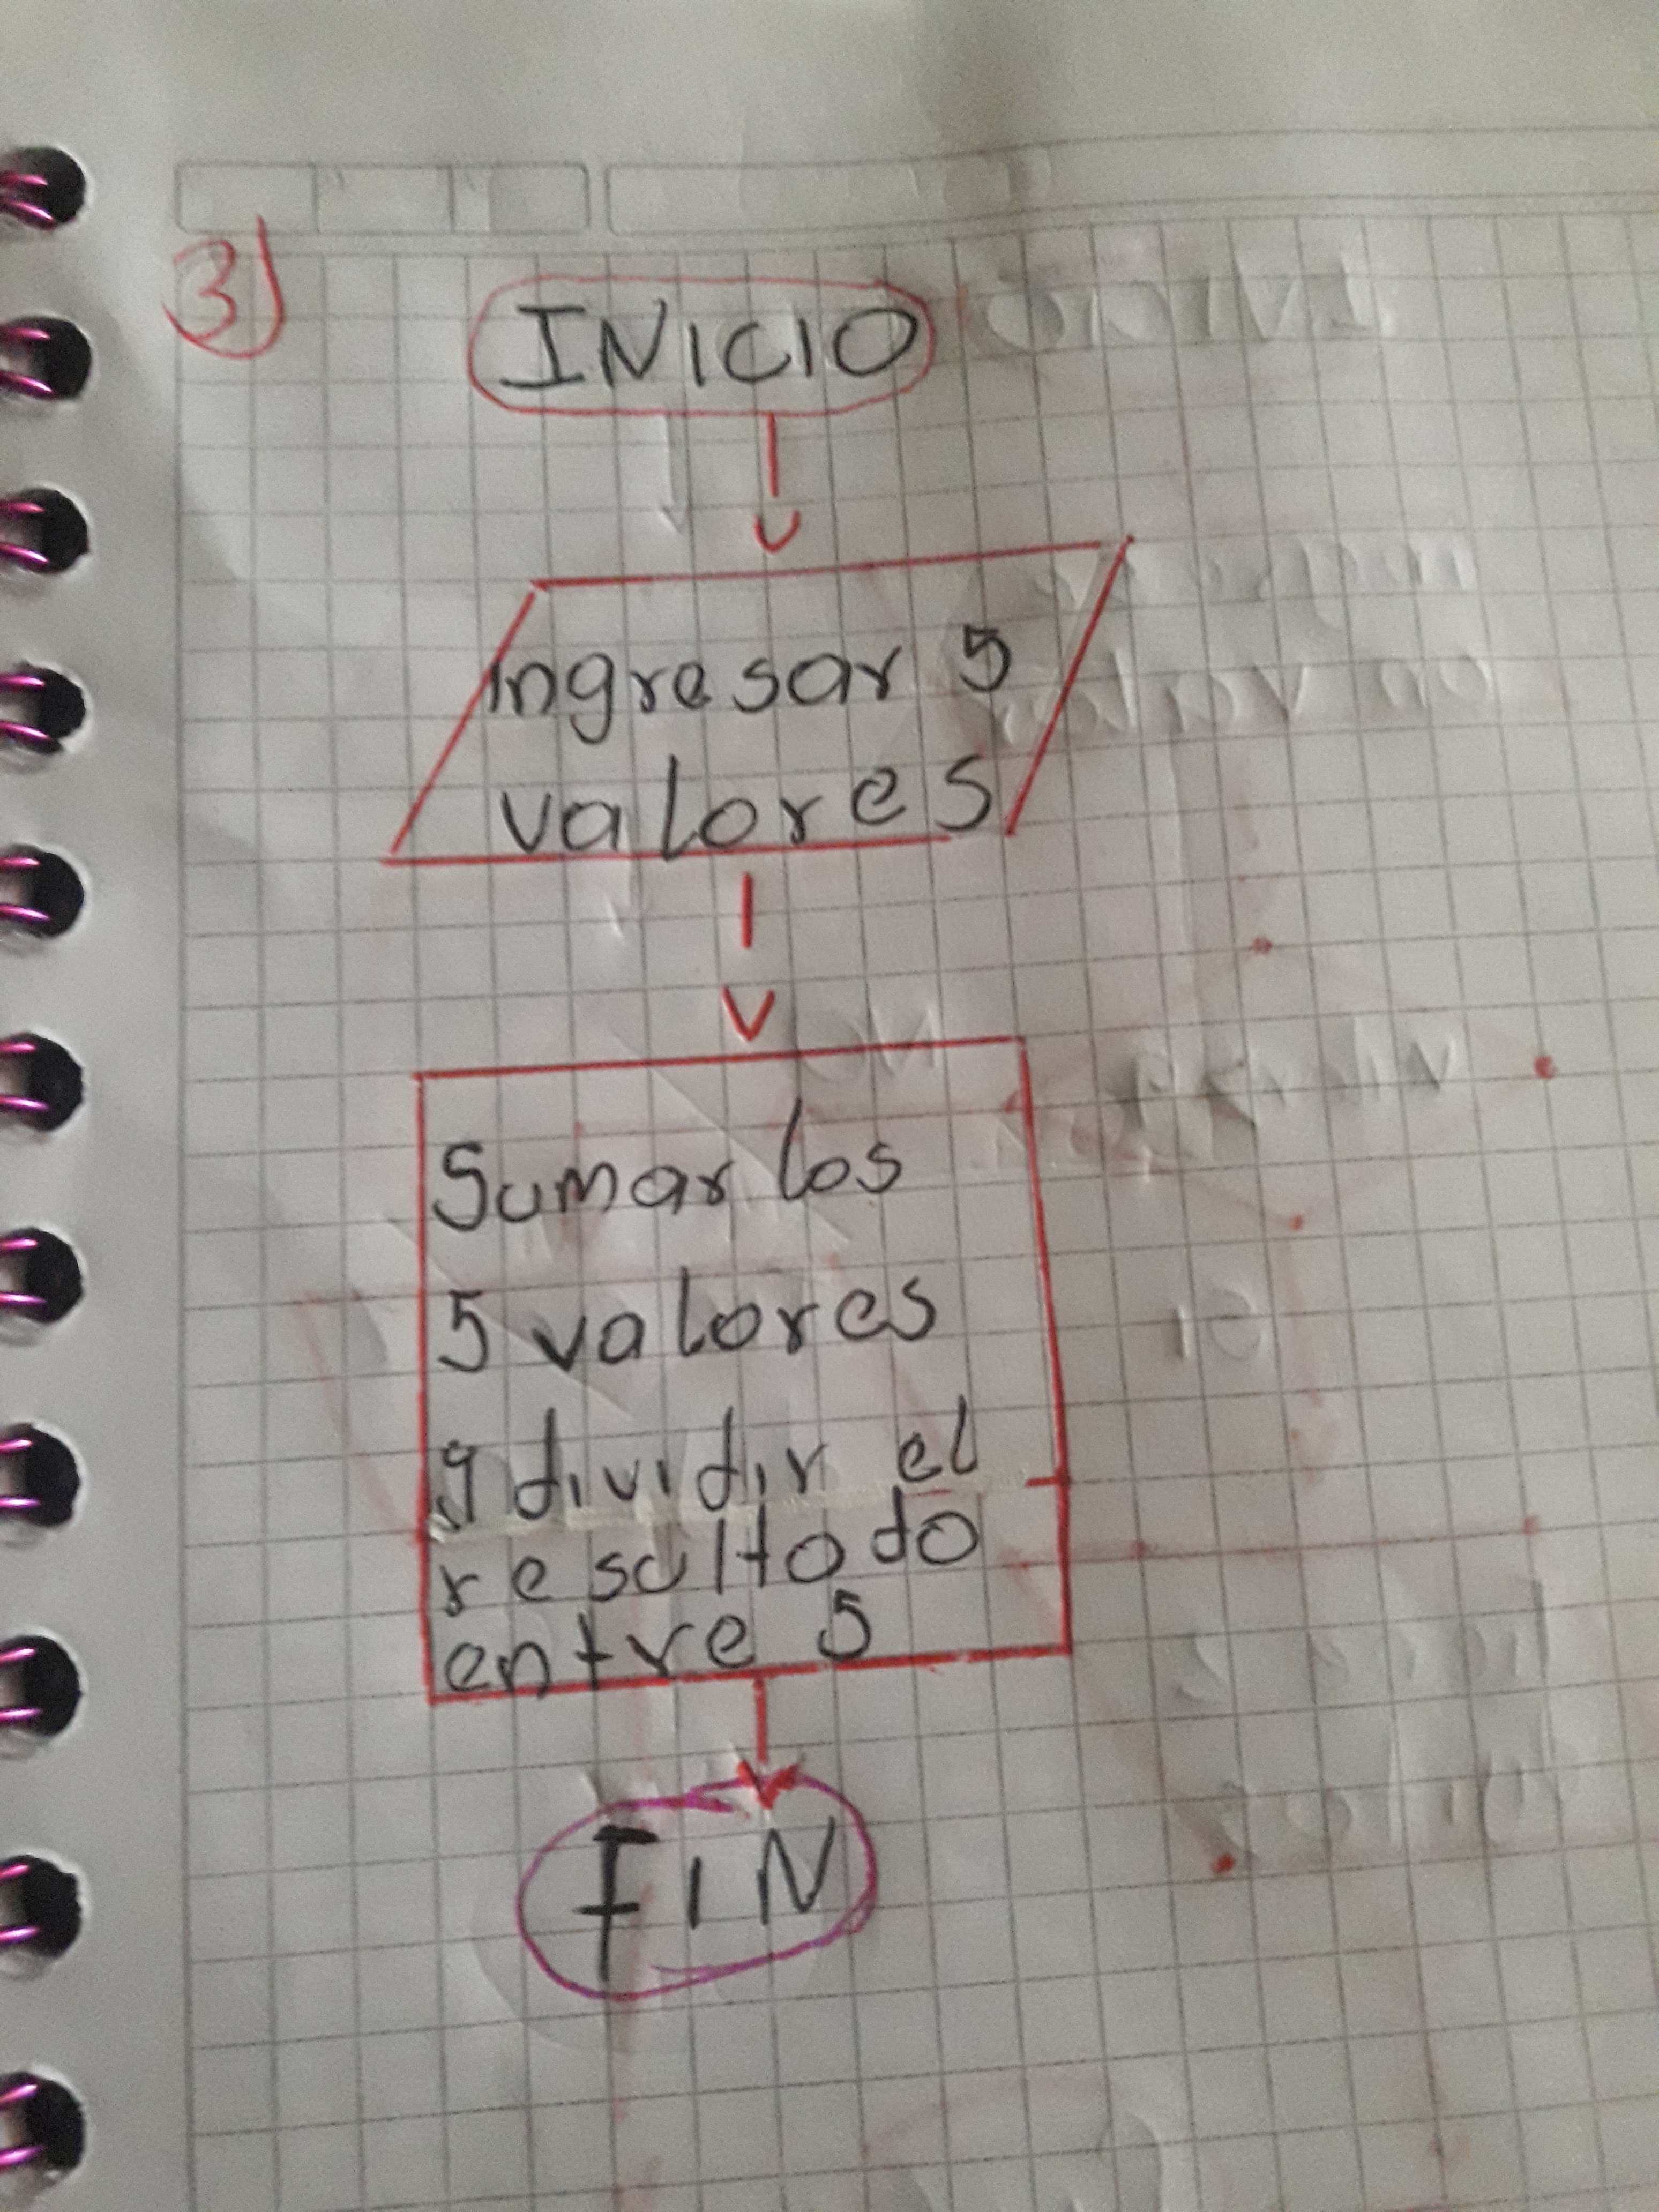 3)
INICIO
Ingresar 5
valores
Sumar los
5 valores
y dividir el
resultado
entre 5
FIN